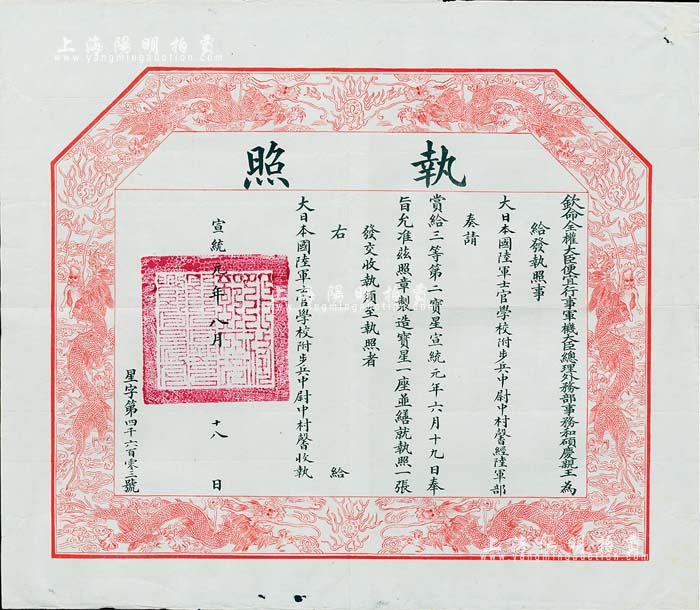 上海陽明拍賣
www.yangmingauction.com
執照
欽命全權大臣便宜行事軍機大臣總理外務部事務和碩慶親王 為
給發執照事
大日本國陸軍士官學校附步兵中尉中村馨經陸軍部
奏請
賞給三等第二寶星宣統元年六月十九日奉
旨允准茲照章製造寶星一座並繕就執照一張
發交收執須至執照者
右 給
大日本國陸軍士官學校附步兵中尉中村馨收執
宣統元年八月十八日
星字第四千六百零三號
上海陽明拍賣
www.yangmingauction.com
上海陽明拍賣
www.yangmingauction.com
上海陽明拍賣
www.yangmingauction.com